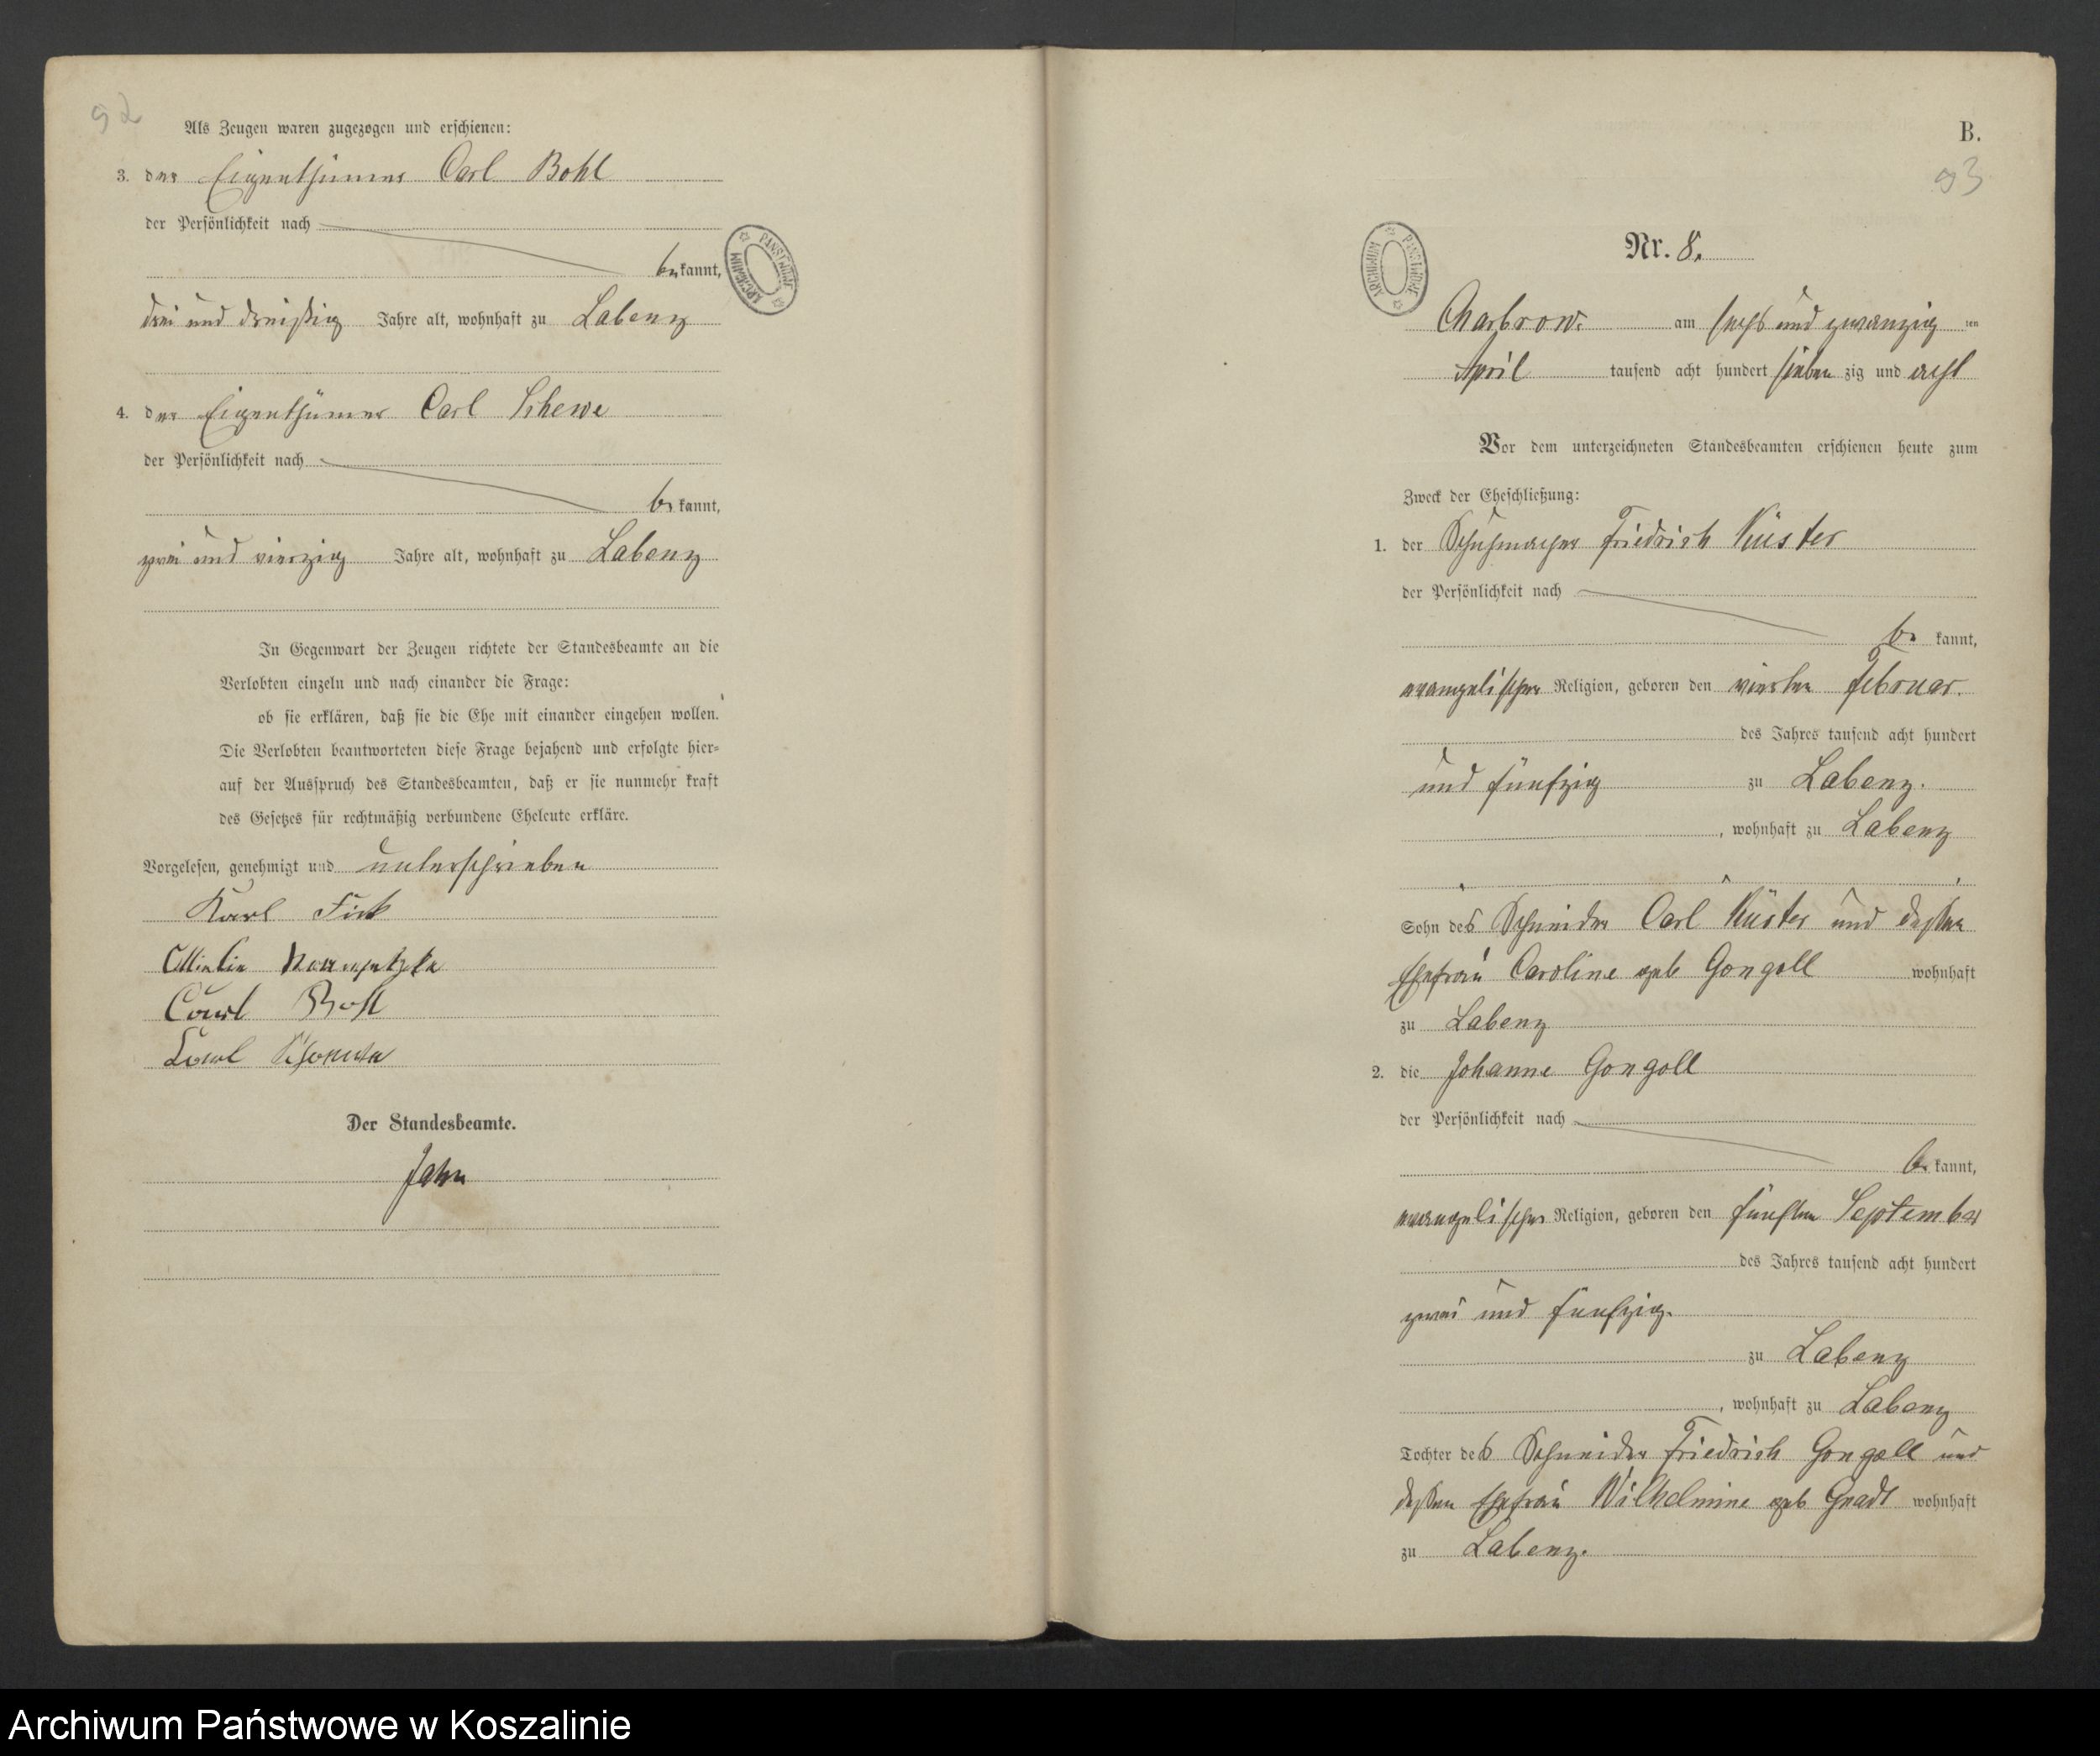 92
Als Zeugen waren zugezogen und erschienen:
3. der Eigenthümer Carl Bohl
der Persönlichkeit nach
bekannt,
drei und dreißig Jahre alt, wohnhaft zu Labenz
4. der Eigenthümer Carl Schewe
der Persönlichkeit nach
bekannt,
zwei und vierzig Jahre alt, wohnhaft zu Labenz
In Gegenwart der Zeugen richtete der Standesbeamte an die
Verlobten einzeln und nach einander die Frage:
ob sie erklären, daß sie die Ehe mit einander eingehen wollen.
Die Verlobten beantworteten diese Frage bejahend und erfolgte hier=
auf der Ausspruch des Standesbeamten, daß er sie nunmehr kraft
des Gesetzes für rechtmäßig verbundene Eheleute erkläre.
Vorgelesen, genehmigt und unterschrieben
Karl Fick
Carl Bohl
Der Standesbeamte.
Jahn
ARCHIWUM PAŃSTWOWE
B.
93
ARCHIWUM PAŃSTWOWE
Nr. 8.
Charbrow. am sechs und zwanzig ten
April tausend acht hundert sieben zig und acht
Vor dem unterzeichneten Standesbeamten erschienen heute zum
Zweck der Eheschließung:
1. der Schuhmacher Friedrich Küster
der Persönlichkeit nach
be kannt,
evangelischer Religion, geboren den vierten Februar.
des Jahres tausend acht hundert
und fünfzig zu Labenz.
, wohnhaft zu Labenz
Sohn des Schneider Carl Küster und dessen
Ehefrau Caroline geb Gongoll wohnhaft
zu Labenz
2. die Johanne Gongoll
der Persönlichkeit nach
be kannt,
evangelischer Religion, geboren den fünften September
des Jahres tausend acht hundert
zwei und fünfzig.
zu Labenz
, wohnhaft zu Labenz
Tochter des Schneider Friedrich Gongoll und
dessen Ehefrau Wilhelmine geb Gnadt wohnhaft
zu Labenz.
Archiwum Państwowe w Koszalinie